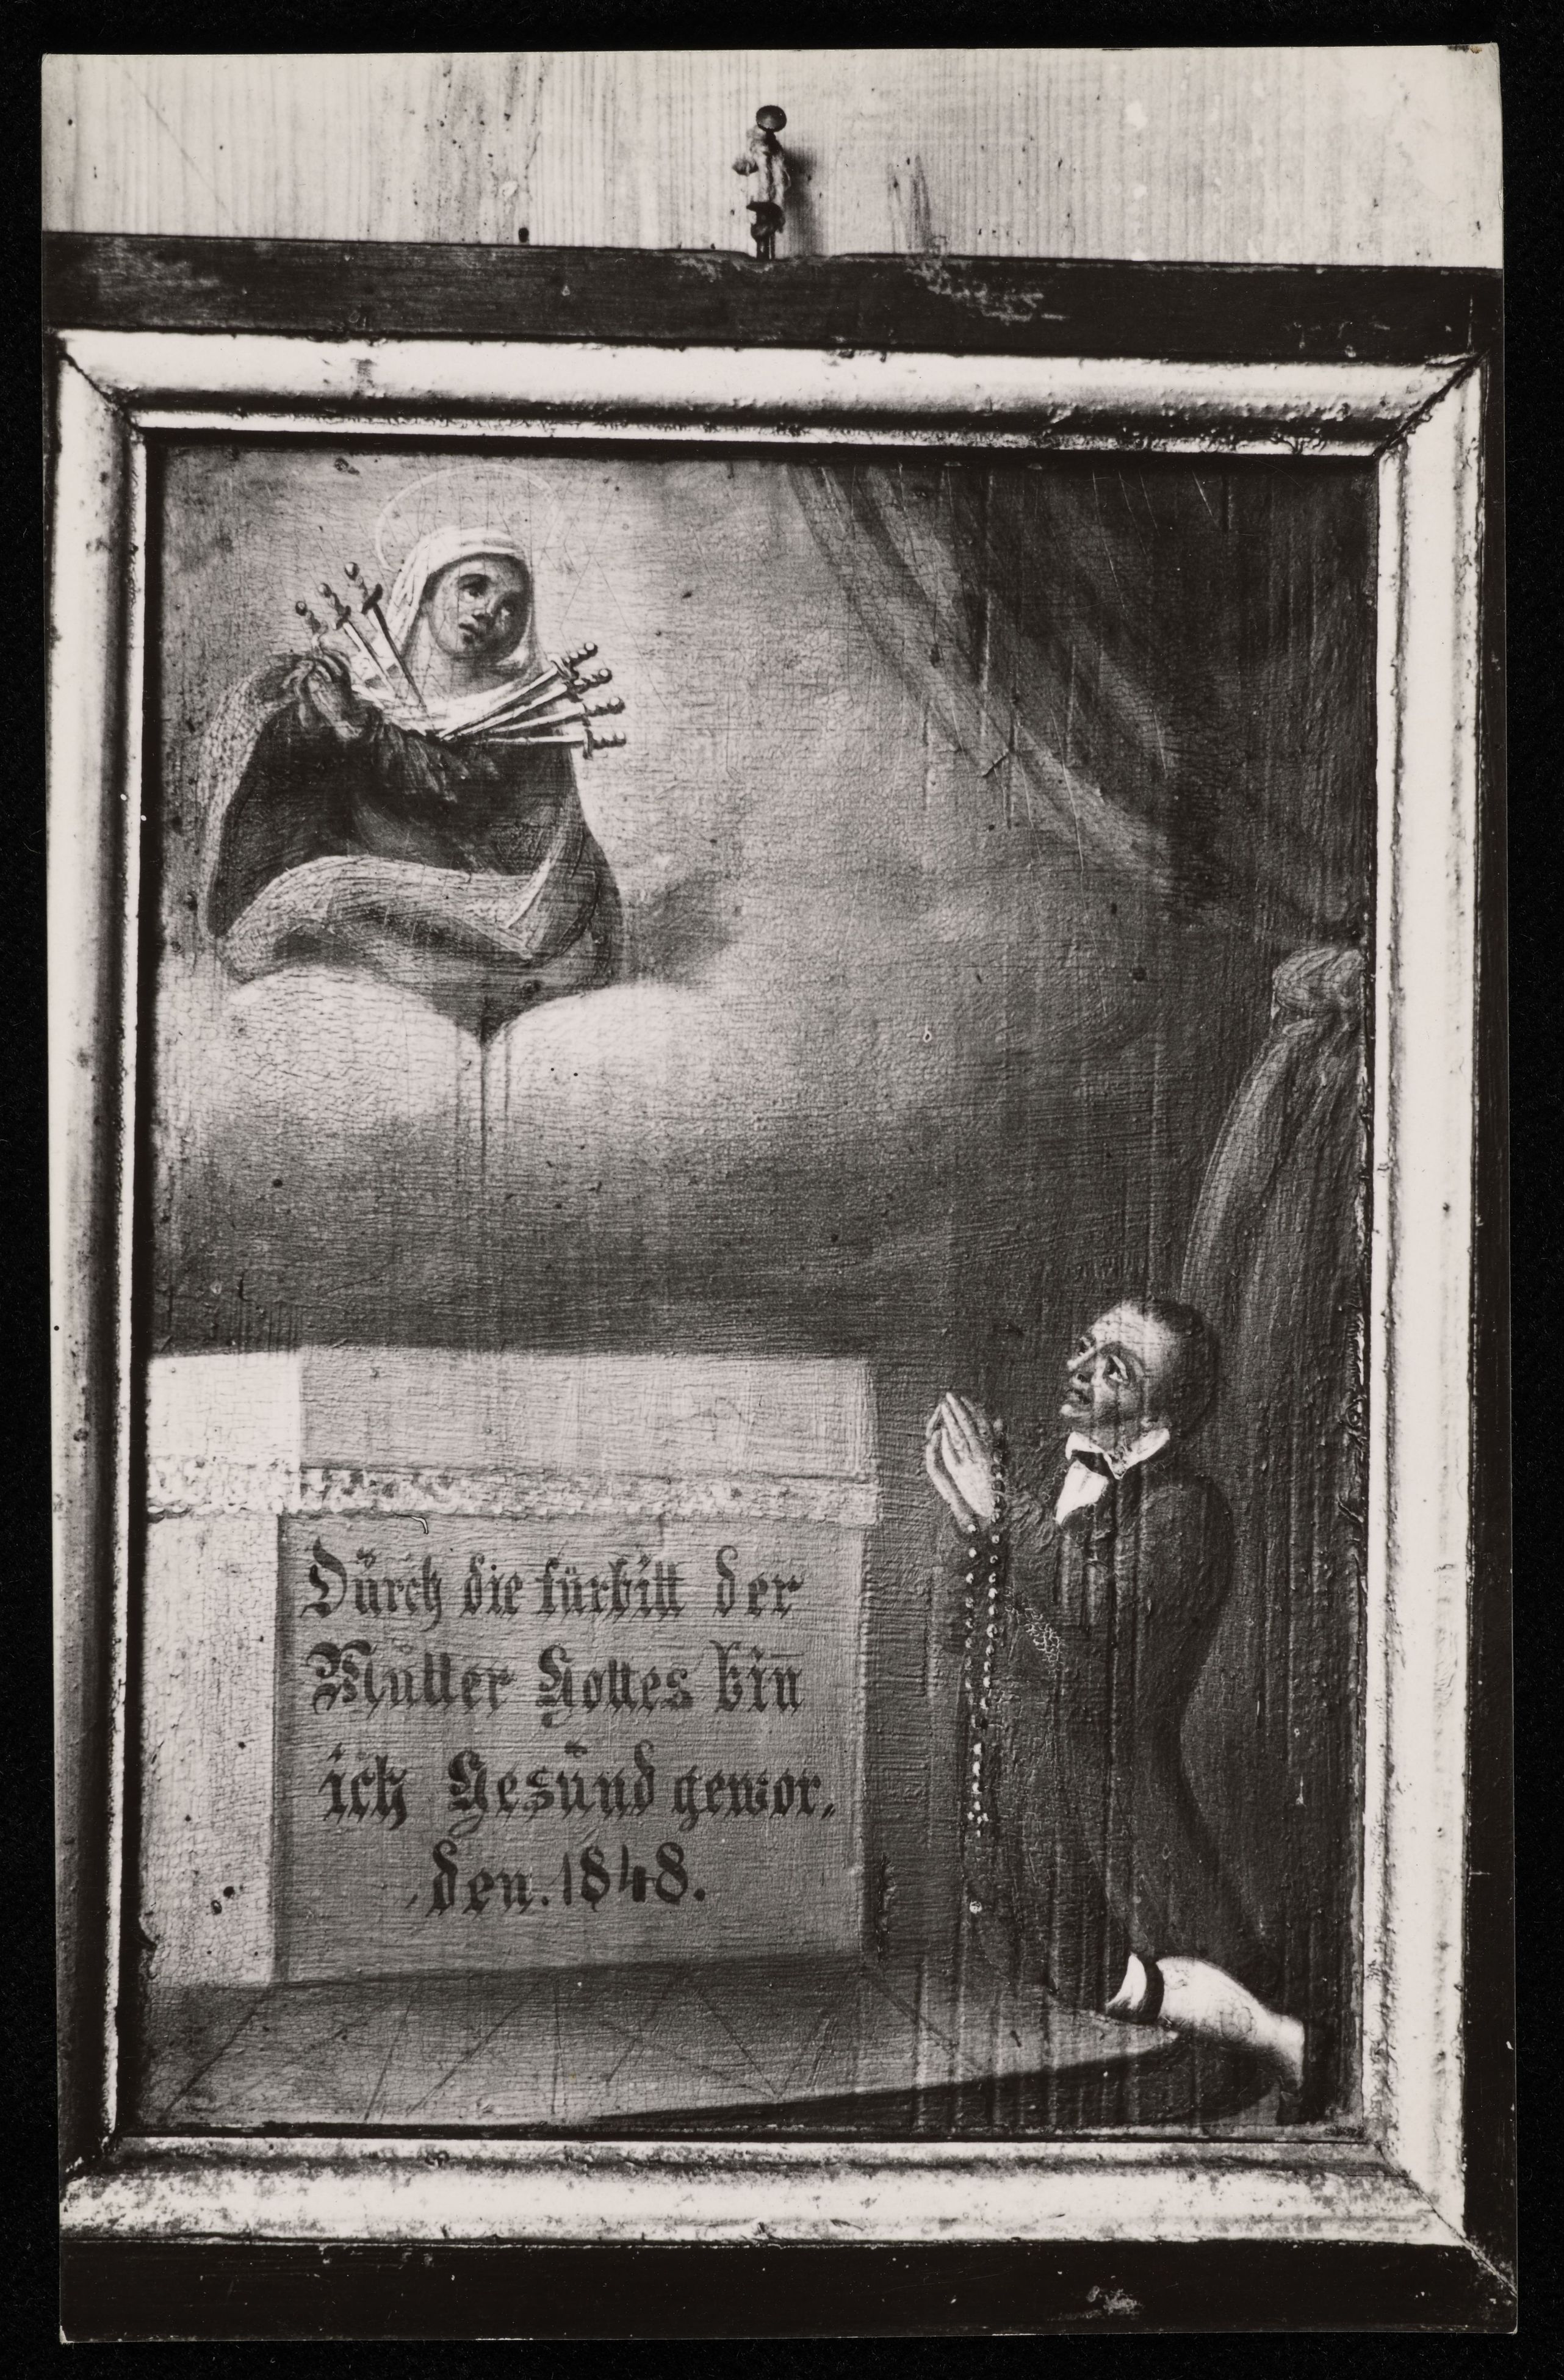 Durch die fürbitt der
Mutter Gottes bin
ich Gesund gewor„
den. 1848.